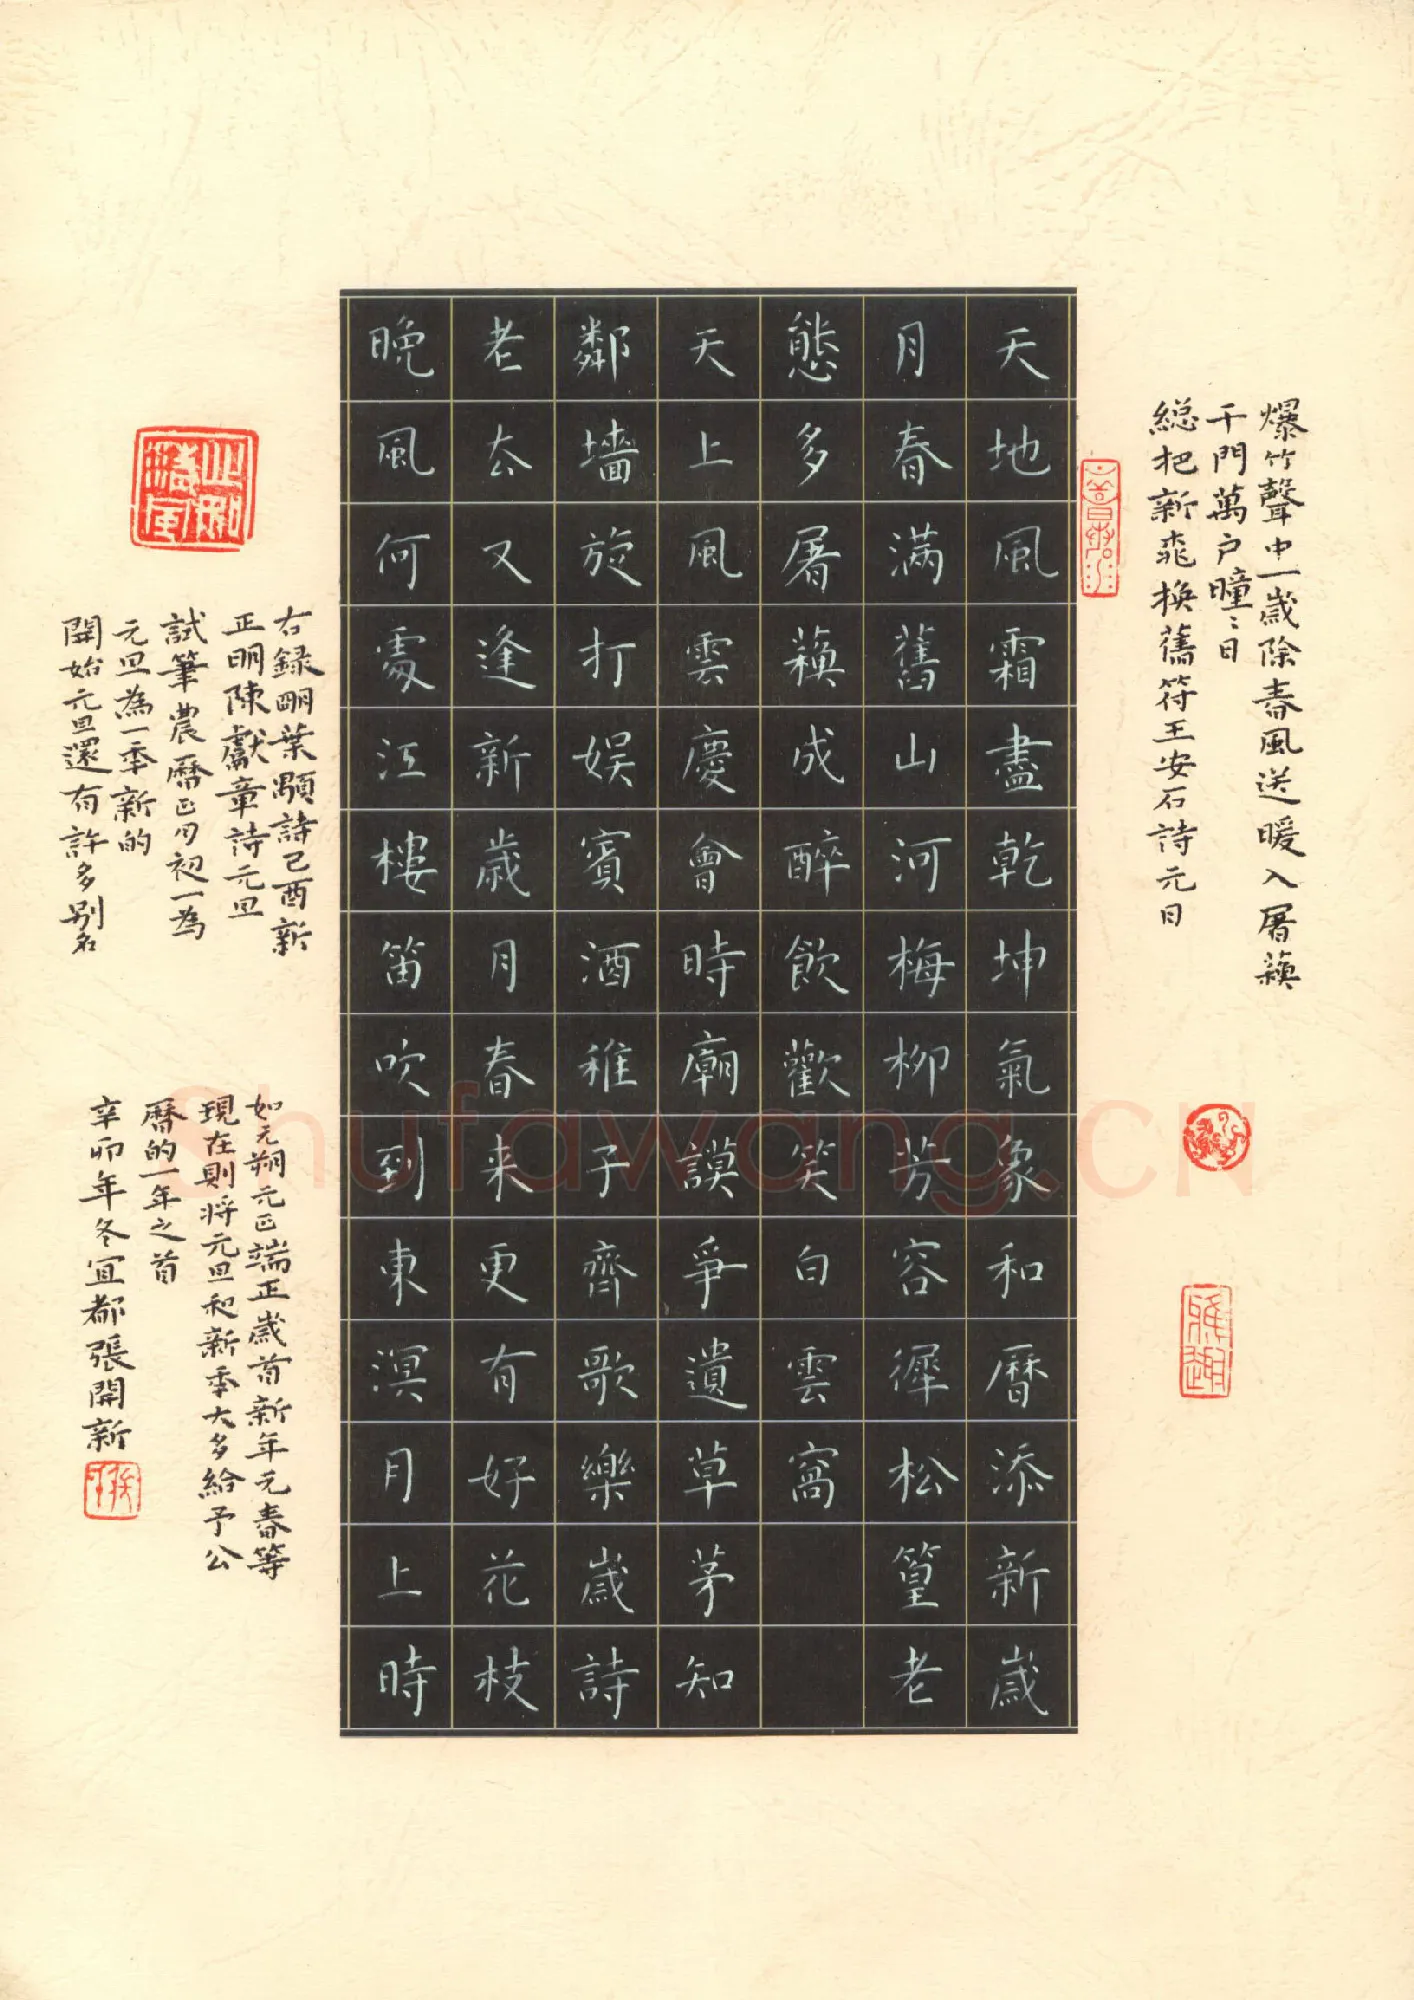 爆竹聲中一歲除春風送暖入屠蘓
千門萬户曈〻日
総把新桃换舊符王安石詩元日
天地風霜盡乾坤氣象和曆添新歲
月春滿舊山河梅柳芳容穉松篁老
態多屠蘓成醉飲歡笑白雲窩
天上風雲慶會時廟謨爭遺草茅知
鄰墻旋打娱賓酒稚子齊歌樂歲詩
老去又逢新歲月春来更有好花枝
晚風何處江樓笛吹到東溟月上時
右録明葉顒詩己酉新
正明陳獻章詩元旦
試筆農曆正月初一為
元旦為一季新的
開始元旦還有許多别名
如元朔元正端正歲首新年元春等
現在則將元旦和新季大多給予公
曆的一年之首
辛卯年冬宜都張開新
雅趣
Shufawang.CN